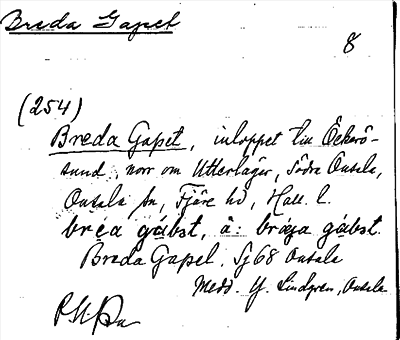 Breda Gapet
8
(254)
Breda Gapet, inloppet till Öckerö-
sund, norr om Utterlagår, Södra Onsala,
Onsala sn, Fjäre hd, Hall. l.
bréa gábst, â: brája gábst.
Breda Gapet, Sj 68 Onsala
Medd. Y. Lindgren, Onsala